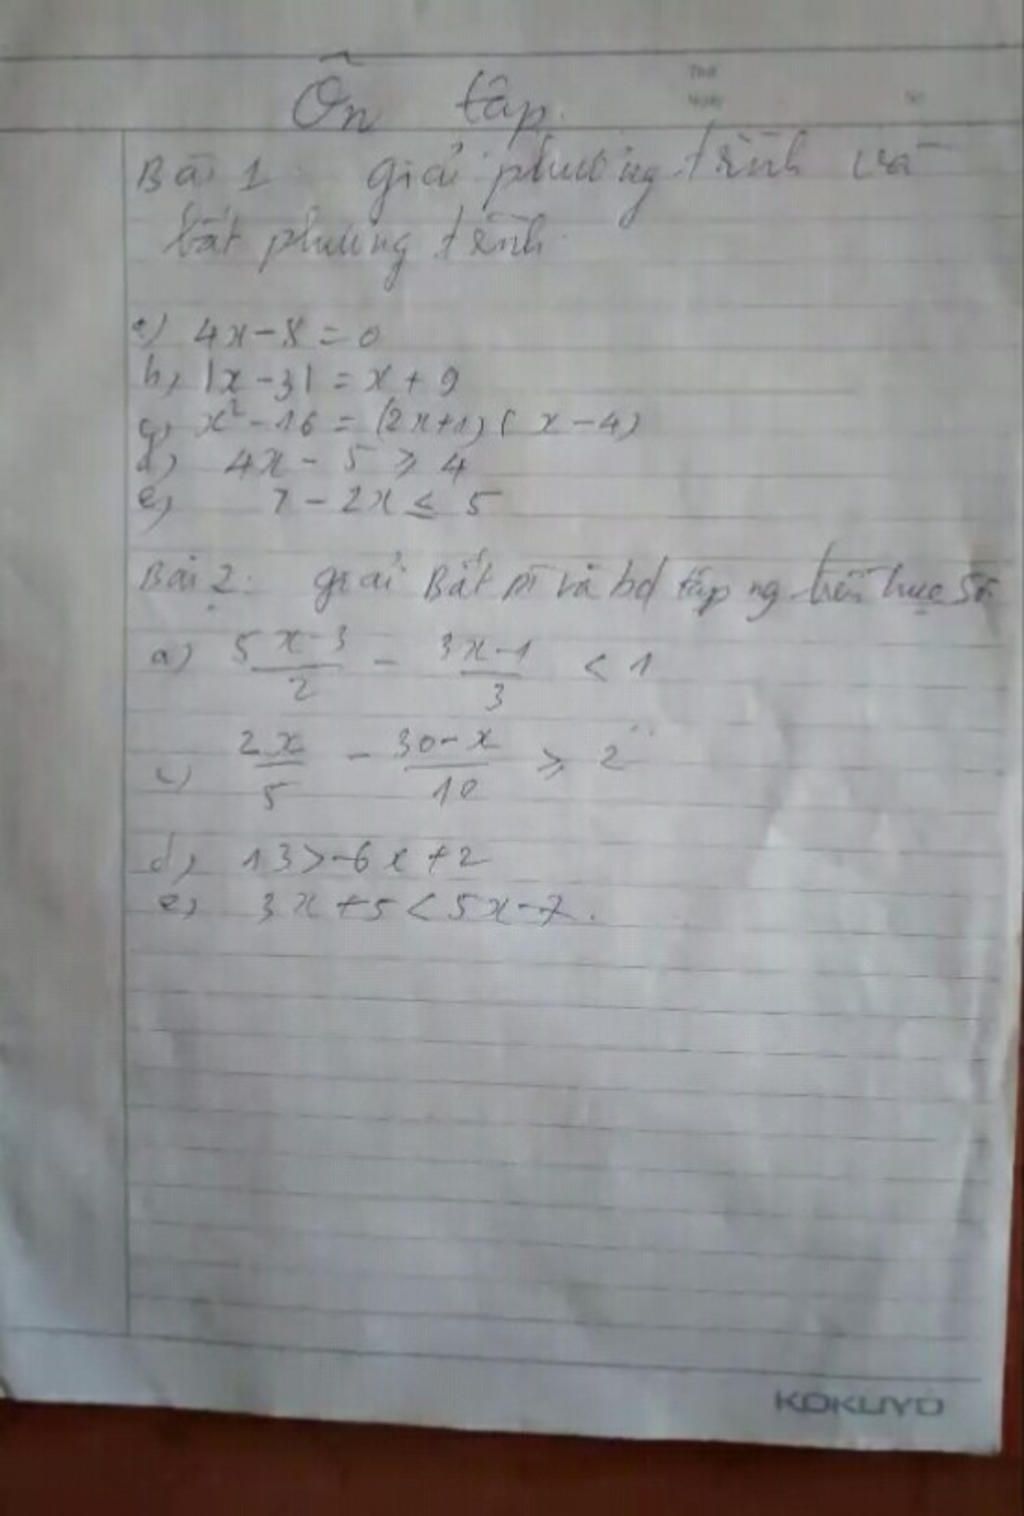 Ôn tập.
Thứ
Ngày
Số
Bài 1: giải phương trình và
bất phương trình
a) 4x-8=0
b, |x-3| = x + 9
c, x²-16 = (2x+1)(x-4)
d, 4x - 5 ≥ 4
e, 7 - 2x ≤ 5
Bài 2: giải Bất pt và bd tập ng trên trục số
a) (5x-3)/2 - (3x-1)/3 < 1
c) 2x/5 - (30-x)/10 ≥ 2
d, 13>-6x+2
e, 3x+5<5x-7.
KOKUYO